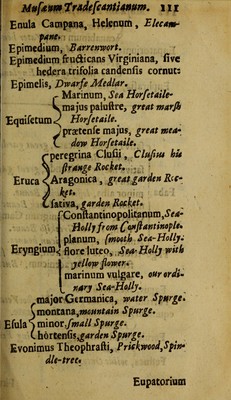 Musæum Tradescantianum. 111
Enula Campana, Helenum, Elecam-
pane.
Epimedium, Barrenwort.
Epimedium fructicans Virginiana, sive
hedera trifolia candensis cornut:
Epimelis, Dwarfe Medlar.
Marinum, Sea Horsetaile
majus palustre, great marsh
Equisetum Horsetaile.
prætense majus, great mea-
dow Horsetaile.
peregrina Clusii, Clusius his
strange Rocket.
Eruca Aragonica, great garden Roc-
ket.
sativa, garden Rocket.
Constantinopolitanum, Sea-
Holly from Constantinople.
planum, smooth Sea-Holly.
Eryngium flore luteo, Sea-Holly with
yellow flower.
marinum vulgare, our ordi-
nary Sea-Holly.
major Germanica, water Spurge.
montana, mountain Spurge.
Esula minor, small Spurge.
hortensis, garden Spurge.
Evonimus Theophrasti, Prickwood, Spin-
dle-tree.
Eupatorium